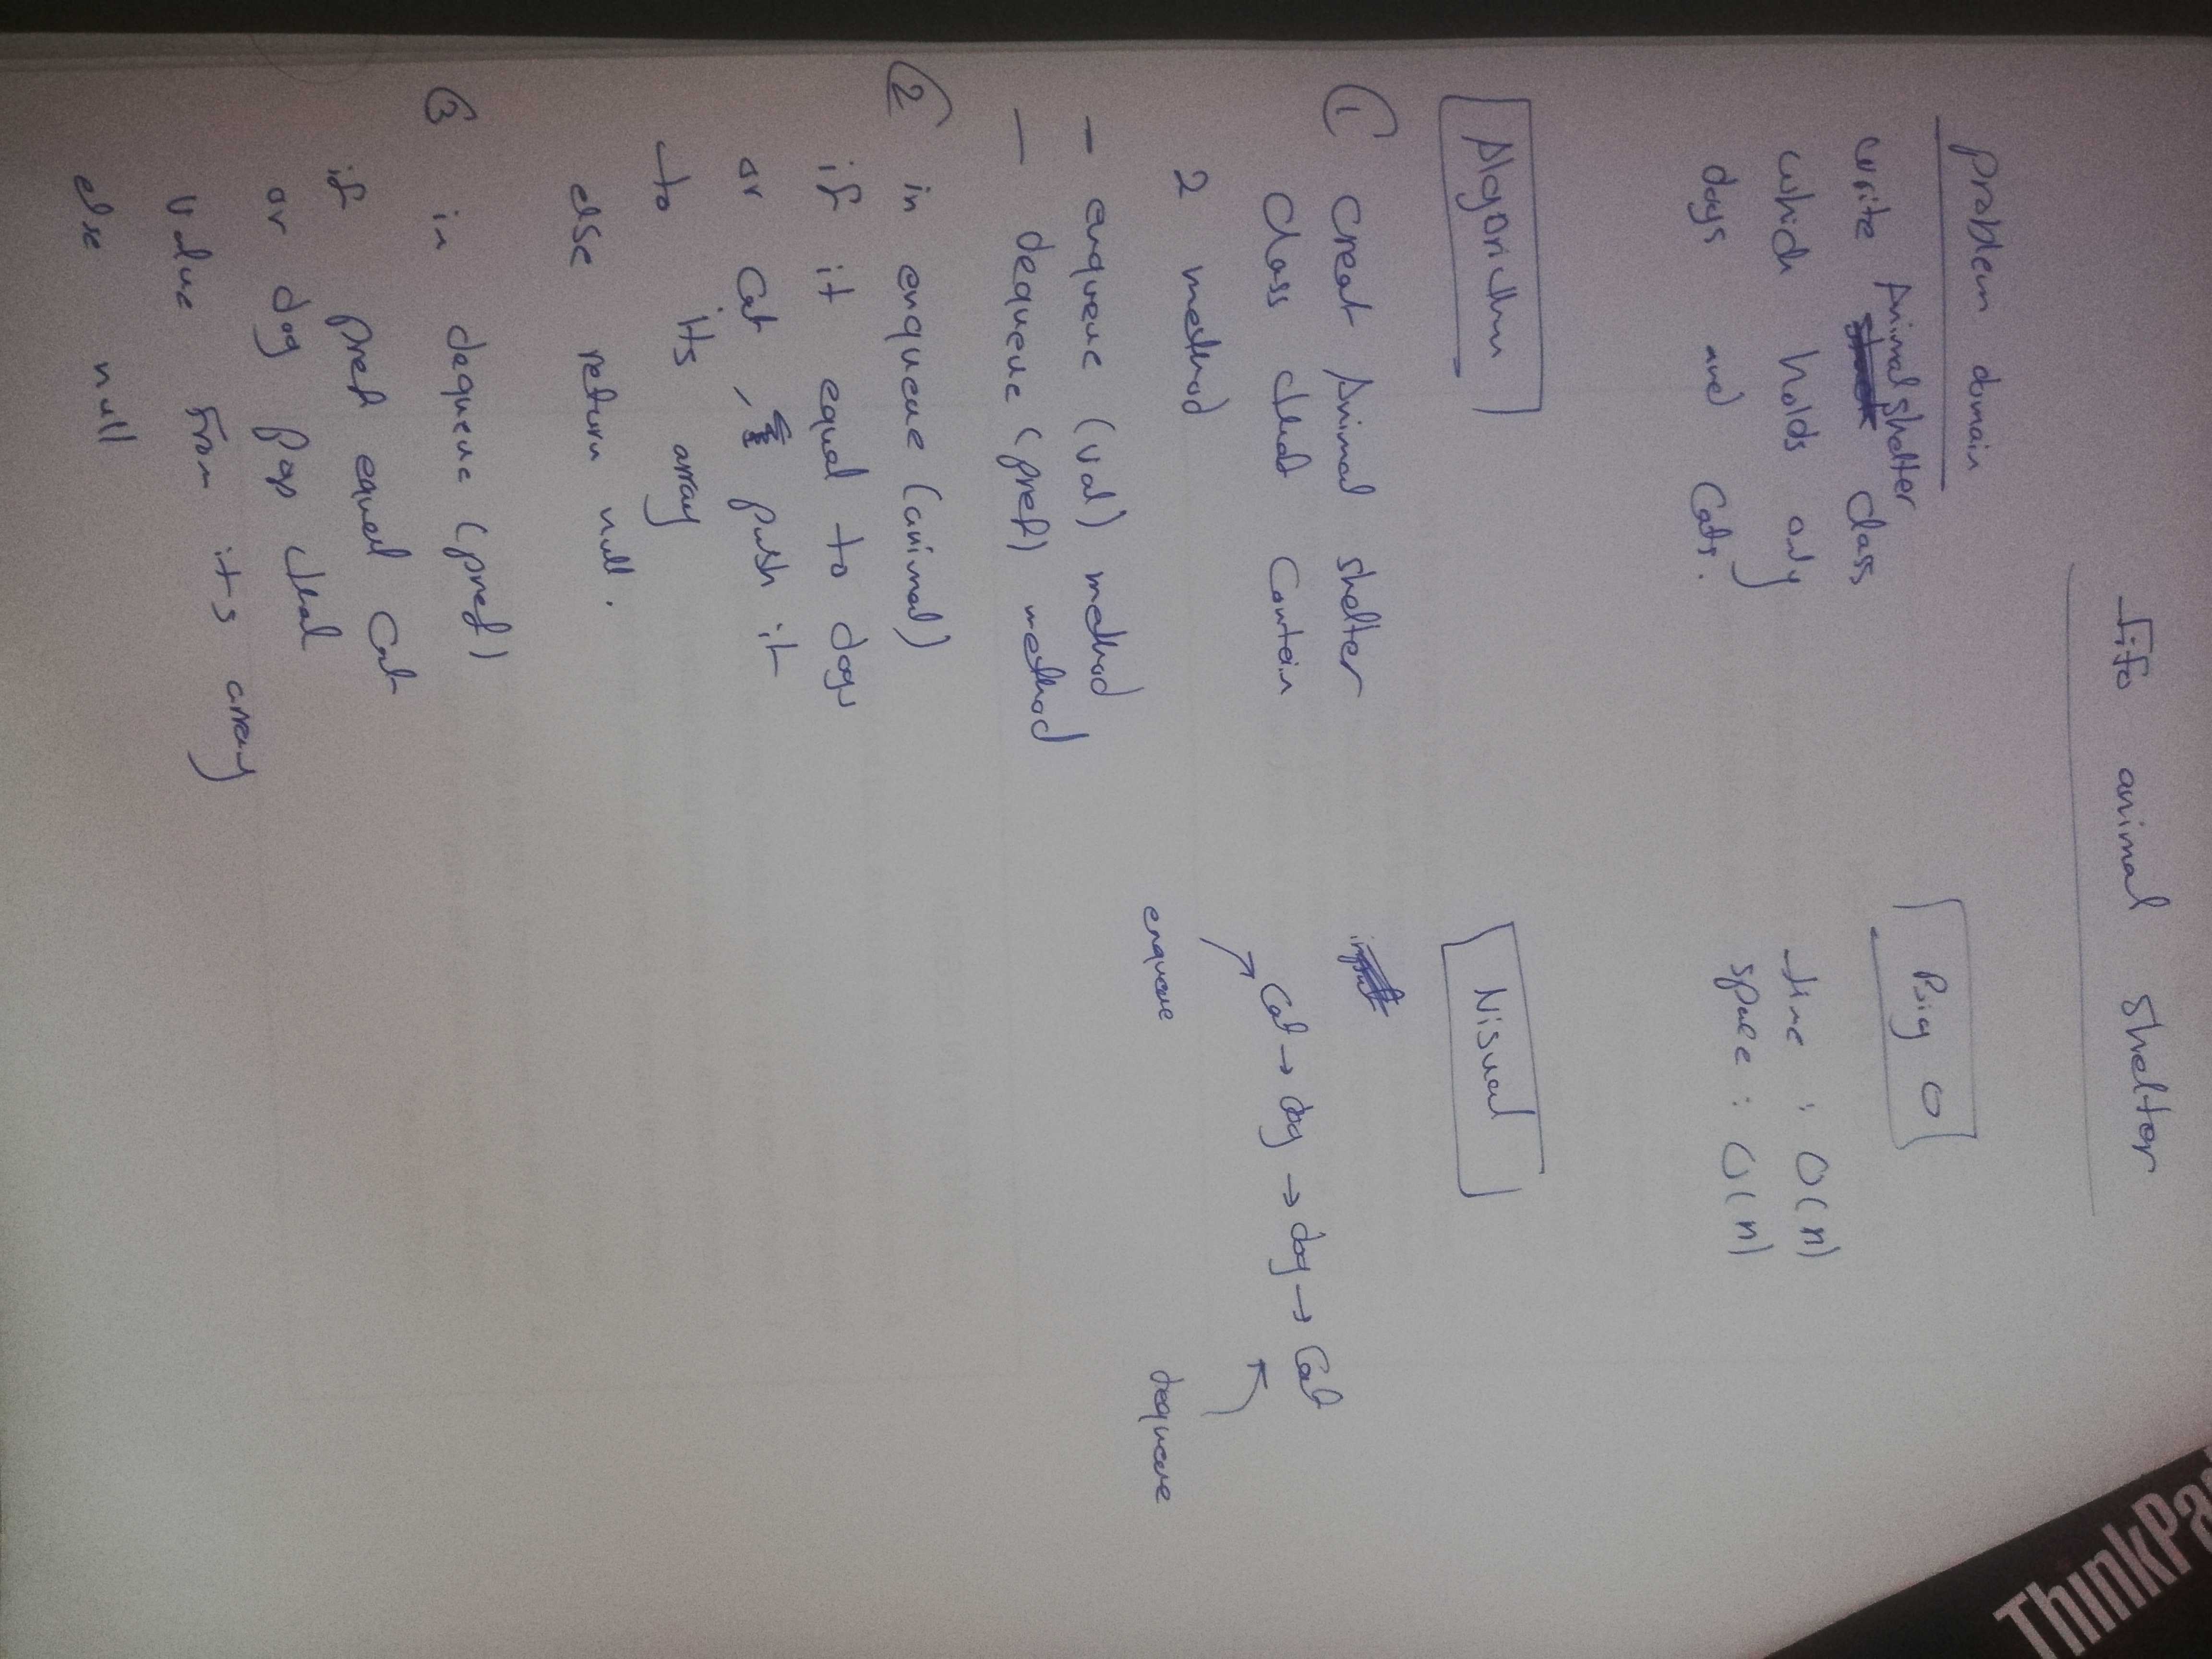 fifo animal shelter
problem domain
write Animal shelter class
which holds only
dogs and Cats.
Big O
time : O(n)
space : O(n)
Algorithm
① creat Animal shelter
class that contain
2 method
- enqueue (val) method
- dequeue (pref) method
② in enqueue (animal)
if it equal to dogs
or cat, push it
to its array
else return null.
③ in dequeue (pref)
if pref equal cat
or dog pop that
value from its array
else null
Visual
input
Cat → dog → dog → Cat
enqueue
dequeue
ThinkPad